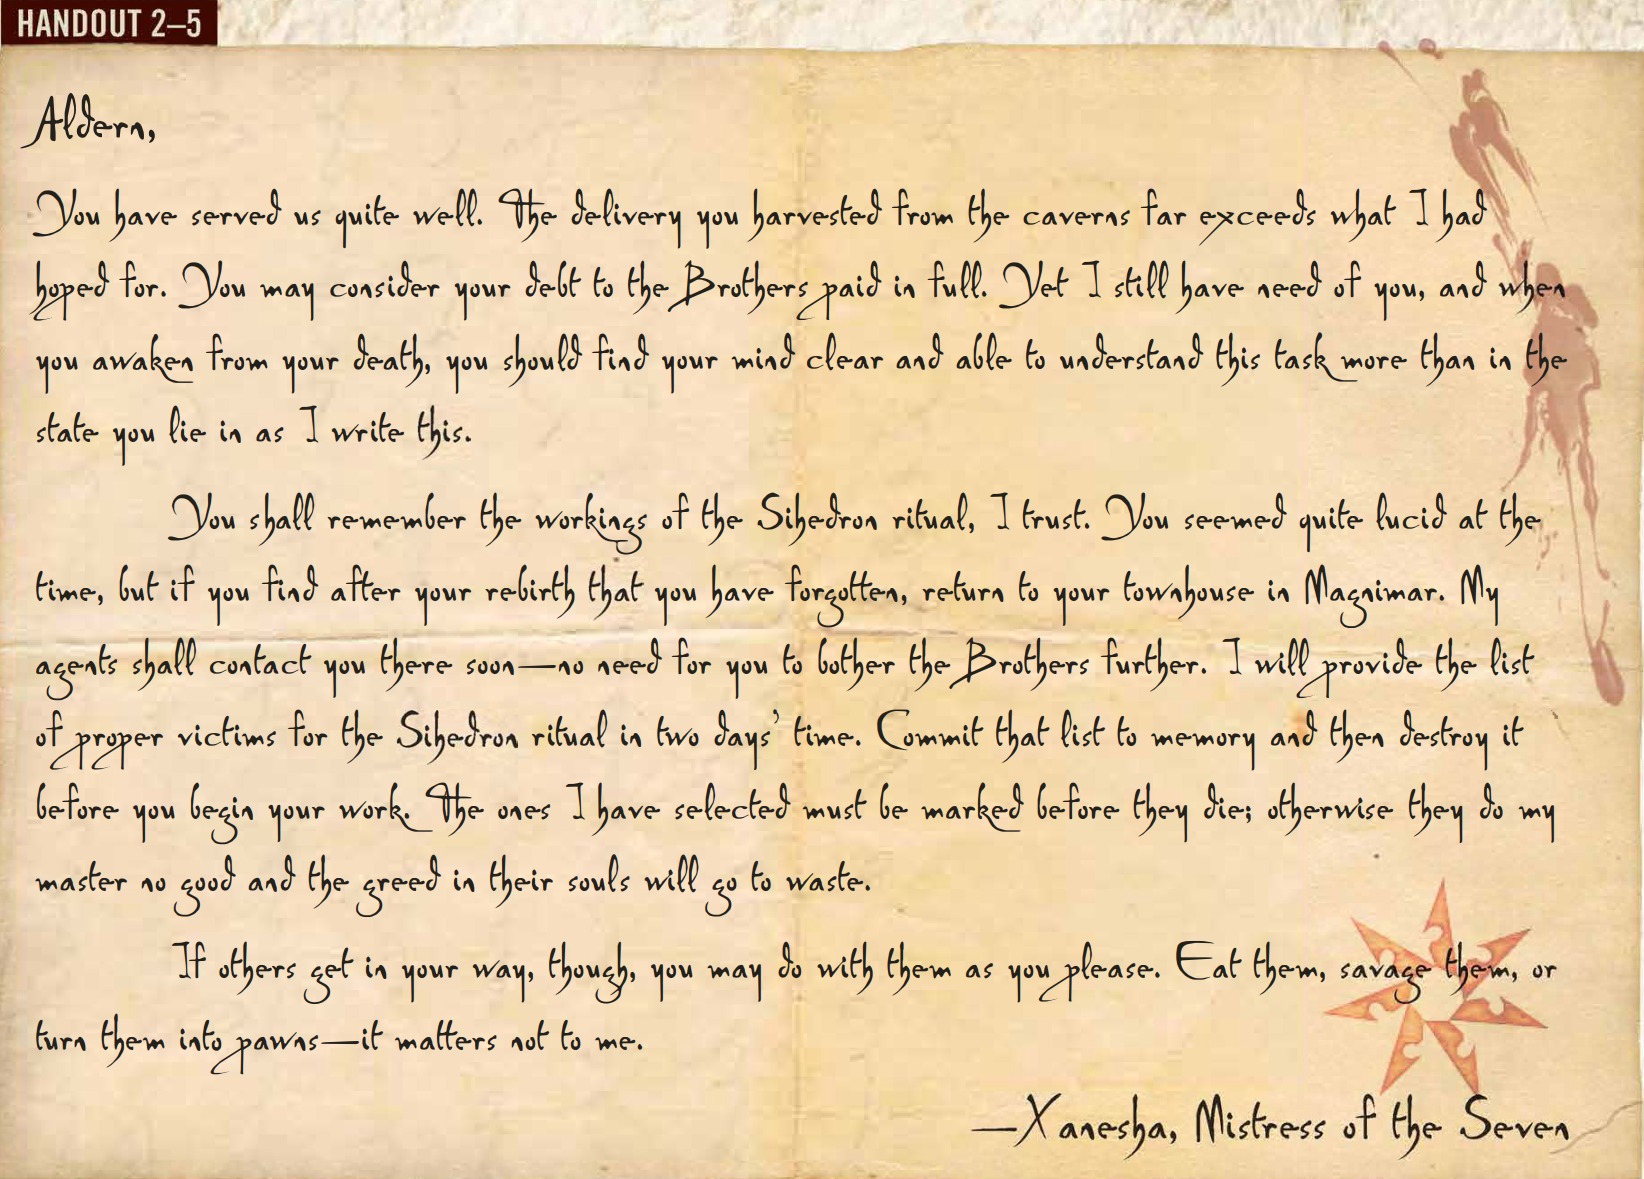 HANDOUT 2–5
Aldern,
You have served us quite well. The delivery you harvested from the caverns far exceeds what I had
hoped for. You may consider your debt to the Brothers paid in full. Yet I still have need of you, and when
you awaken from your death, you should find your mind clear and able to understand this task more than in the
state you lie in as I write this.
You shall remember the workings of the Sihedron ritual, I trust. You seemed quite lucid at the
time, but if you find after your rebirth that you have forgotten, return to your townhouse in Magnimar. My
agents shall contact you there soon—no need for you to bother the Brothers further. I will provide the list
of proper victims for the Sihedron ritual in two days’ time. Commit that list to memory and then destroy it
before you begin your work. The ones I have selected must be marked before they die; otherwise they do my
master no good and the greed in their souls will go to waste.
If others get in your way, though, you may do with them as you please. Eat them, savage them, or
turn them into pawns—it matters not to me.
—Xanesha, Mistress of the Seven